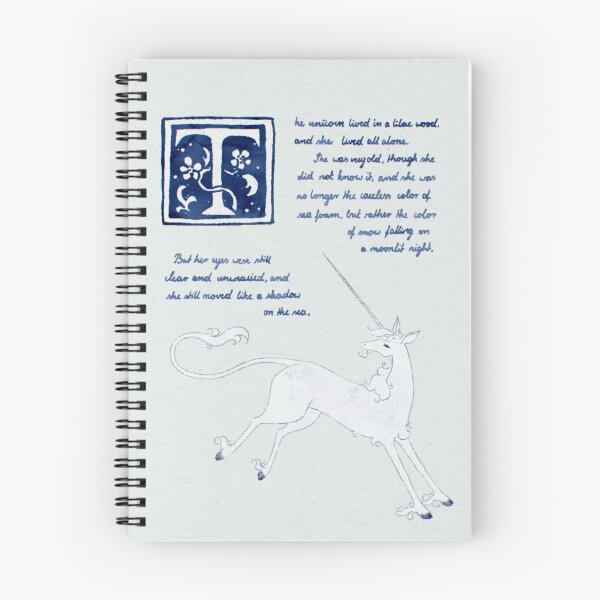 The unicorn lived in a lilac wood,
and she lived all alone.
She was very old, though she
did not know it, and she was
no longer the careless color of
sea foam, but rather the color
of snow falling on
a moonlit night.
But her eyes were still
clear and unwearied, and
she still moved like a shadow
on the sea.